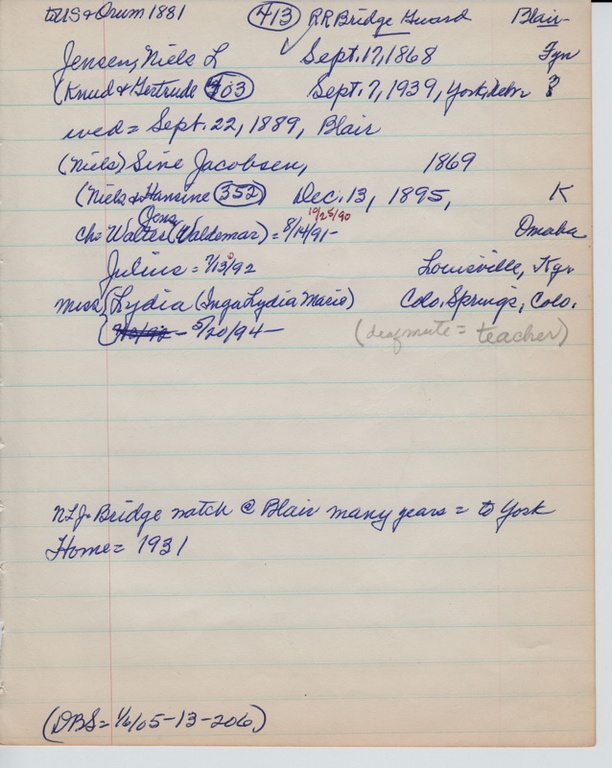 to US & Orum 1881 (413) RR Bridge Guard Blair
Jensen, Niels L Sept. 17, 1868 Fyn
(Knud & Gertrude 403) Sept. 7, 1939, York, Nebr. ?
wed = Sept. 22, 1889, Blair
(Niels) Sine Jacobsen, 1869
(Niels & Hansine 352) Dec. 13, 1895, K
Jens 10/25/90
Ch = Walter (Valdemar) = 8/14/91 - Omaha
Julius = 7/13/92 Louisville, Ky.
Miss Lydia (Inga Lydia Marie) Colo. Springs, Colo.
5/20/94 - (deafmute = teacher)
NLJ = Bridge watch @ Blair many years = to York
Home = 1931
(DBS = 1/6/05-13-206)